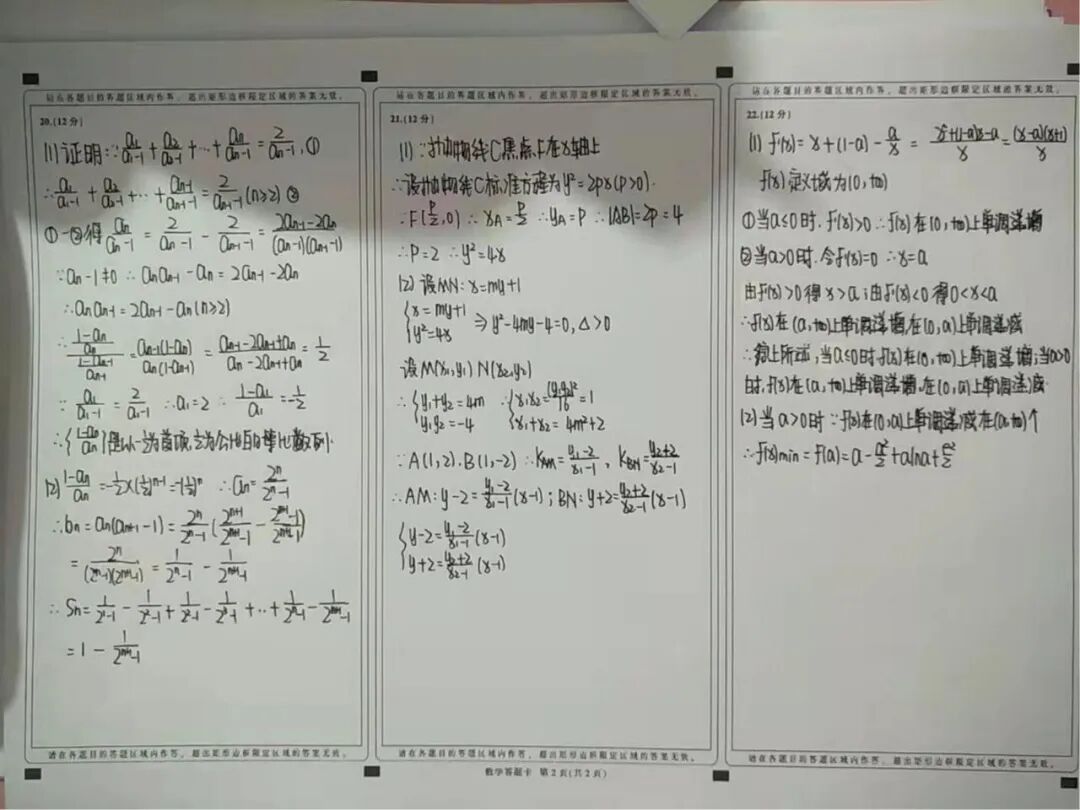 请在各题目的答题区域内作答，超出矩形边框限定区域的答案无效。
20.(12分)
(1)证明:∵a₁/(a₁-1)+a₂/(a₂-1)+…+aₙ/(aₙ-1)=2/(aₙ-1),①
∴a₁/(a₁-1)+a₂/(a₂-1)+…+aₙ₋₁/(aₙ₋₁-1)=2/(aₙ₋₁-1)(n≥2)②
①-②得aₙ/(aₙ-1)=2/(aₙ-1)-2/(aₙ₋₁-1)=(2aₙ₋₁-2aₙ)/((aₙ-1)(aₙ₋₁-1))
∵aₙ-1≠0 ∴aₙaₙ₋₁-aₙ=2aₙ₋₁-2aₙ
∴aₙaₙ₋₁=2aₙ₋₁-aₙ(n≥2)
∴((1-aₙ)/aₙ)/((1-aₙ₋₁)/aₙ₋₁)=aₙ₋₁(1-aₙ)/(aₙ(1-aₙ₋₁))=(aₙ₋₁-2aₙ₋₁+aₙ)/(aₙ-2aₙ₋₁+aₙ)=1/2
∵a₁/(a₁-1)=2/(a₁-1) ∴a₁=2 ∴(1-a₁)/a₁=-1/2
∴{(1-aₙ)/aₙ}是以-1/2为首项,1/2为公比的等比数列.
(2)(1-aₙ)/aₙ=-1/2×(1/2)ⁿ⁻¹=-(1/2)ⁿ ∴aₙ=2ⁿ/(2ⁿ-1)
∴bₙ=aₙ(aₙ₊₁-1)=2ⁿ/(2ⁿ-1)(2ⁿ⁺¹/(2ⁿ⁺¹-1)-(2ⁿ⁺¹-1)/(2ⁿ⁺¹-1))
=2ⁿ/((2ⁿ-1)(2ⁿ⁺¹-1))=1/(2ⁿ-1)-1/(2ⁿ⁺¹-1)
∴Sₙ=1/(2¹-1)-1/(2²-1)+1/(2²-1)-1/(2³-1)+…+1/(2ⁿ-1)-1/(2ⁿ⁺¹-1)
=1-1/(2ⁿ⁺¹-1)
请在各题目的答题区域内作答，超出矩形边框限定区域的答案无效。
请在各题目的答题区域内作答，超出矩形边框限定区域的答案无效。
21.(12分)
(1)∵抛物线C焦点F在x轴上
∴设抛物线C标准方程为y²=2px(p>0).
∴F(p/2,0) ∴xA=p/2 ∴yA=P ∴|AB|=2P=4
∴P=2 ∴y²=4x
(2)设MN:x=my+1
{x=my+1
{y²=4x ⇒y²-4my-4=0,Δ>0
设M(x₁,y₁) N(x₂,y₂)
∴{y₁+y₂=4m ∴{x₁x₂=(y₁y₂)²/16=1
{y₁y₂=-4 {x₁+x₂=4m²+2
∵A(1,2).B(1,-2) ∴kAM=(y₁-2)/(x₁-1), kBN=(y₂+2)/(x₂-1)
∴AM:y-2=(y₁-2)/(x₁-1)(x-1);BN:y+2=(y₂+2)/(x₂-1)(x-1)
{y-2=(y₁-2)/(x₁-1)(x-1)
{y+2=(y₂+2)/(x₂-1)(x-1)
请在各题目的答题区域内作答，超出矩形边框限定区域的答案无效。
数学答题卡 第2页(共2页)
请在各题目的答题区域内作答，超出矩形边框限定区域的答案无效。
22.(12分)
(1)f'(x)=x+(1-a)-a/x=(x²+(1-a)x-a)/x=(x-a)(x+1)/x
f(x)定义域为(0,+∞)
①当a≤0时.f'(x)>0∴f(x)在(0,+∞)上单调递增
②当a>0时.令f'(x)=0∴x=a
由f'(x)>0得x>a;由f'(x)<0得0<x<a
∴f(x)在(a,+∞)上单调递增,在(0,a)上单调递减
∴综上所述,当a≤0时f(x)在(0,+∞)上单调递增;当a>0
时,f(x)在(a,+∞)上单调递增,在(0,a)上单调递减.
(2)当a>0时∵f(x)在(0,a)上单调递减在(a,+∞)↑
∴f(x)min=f(a)=a-a²/2+alna+e²/2
请在各题目的答题区域内作答，超出矩形边框限定区域的答案无效。